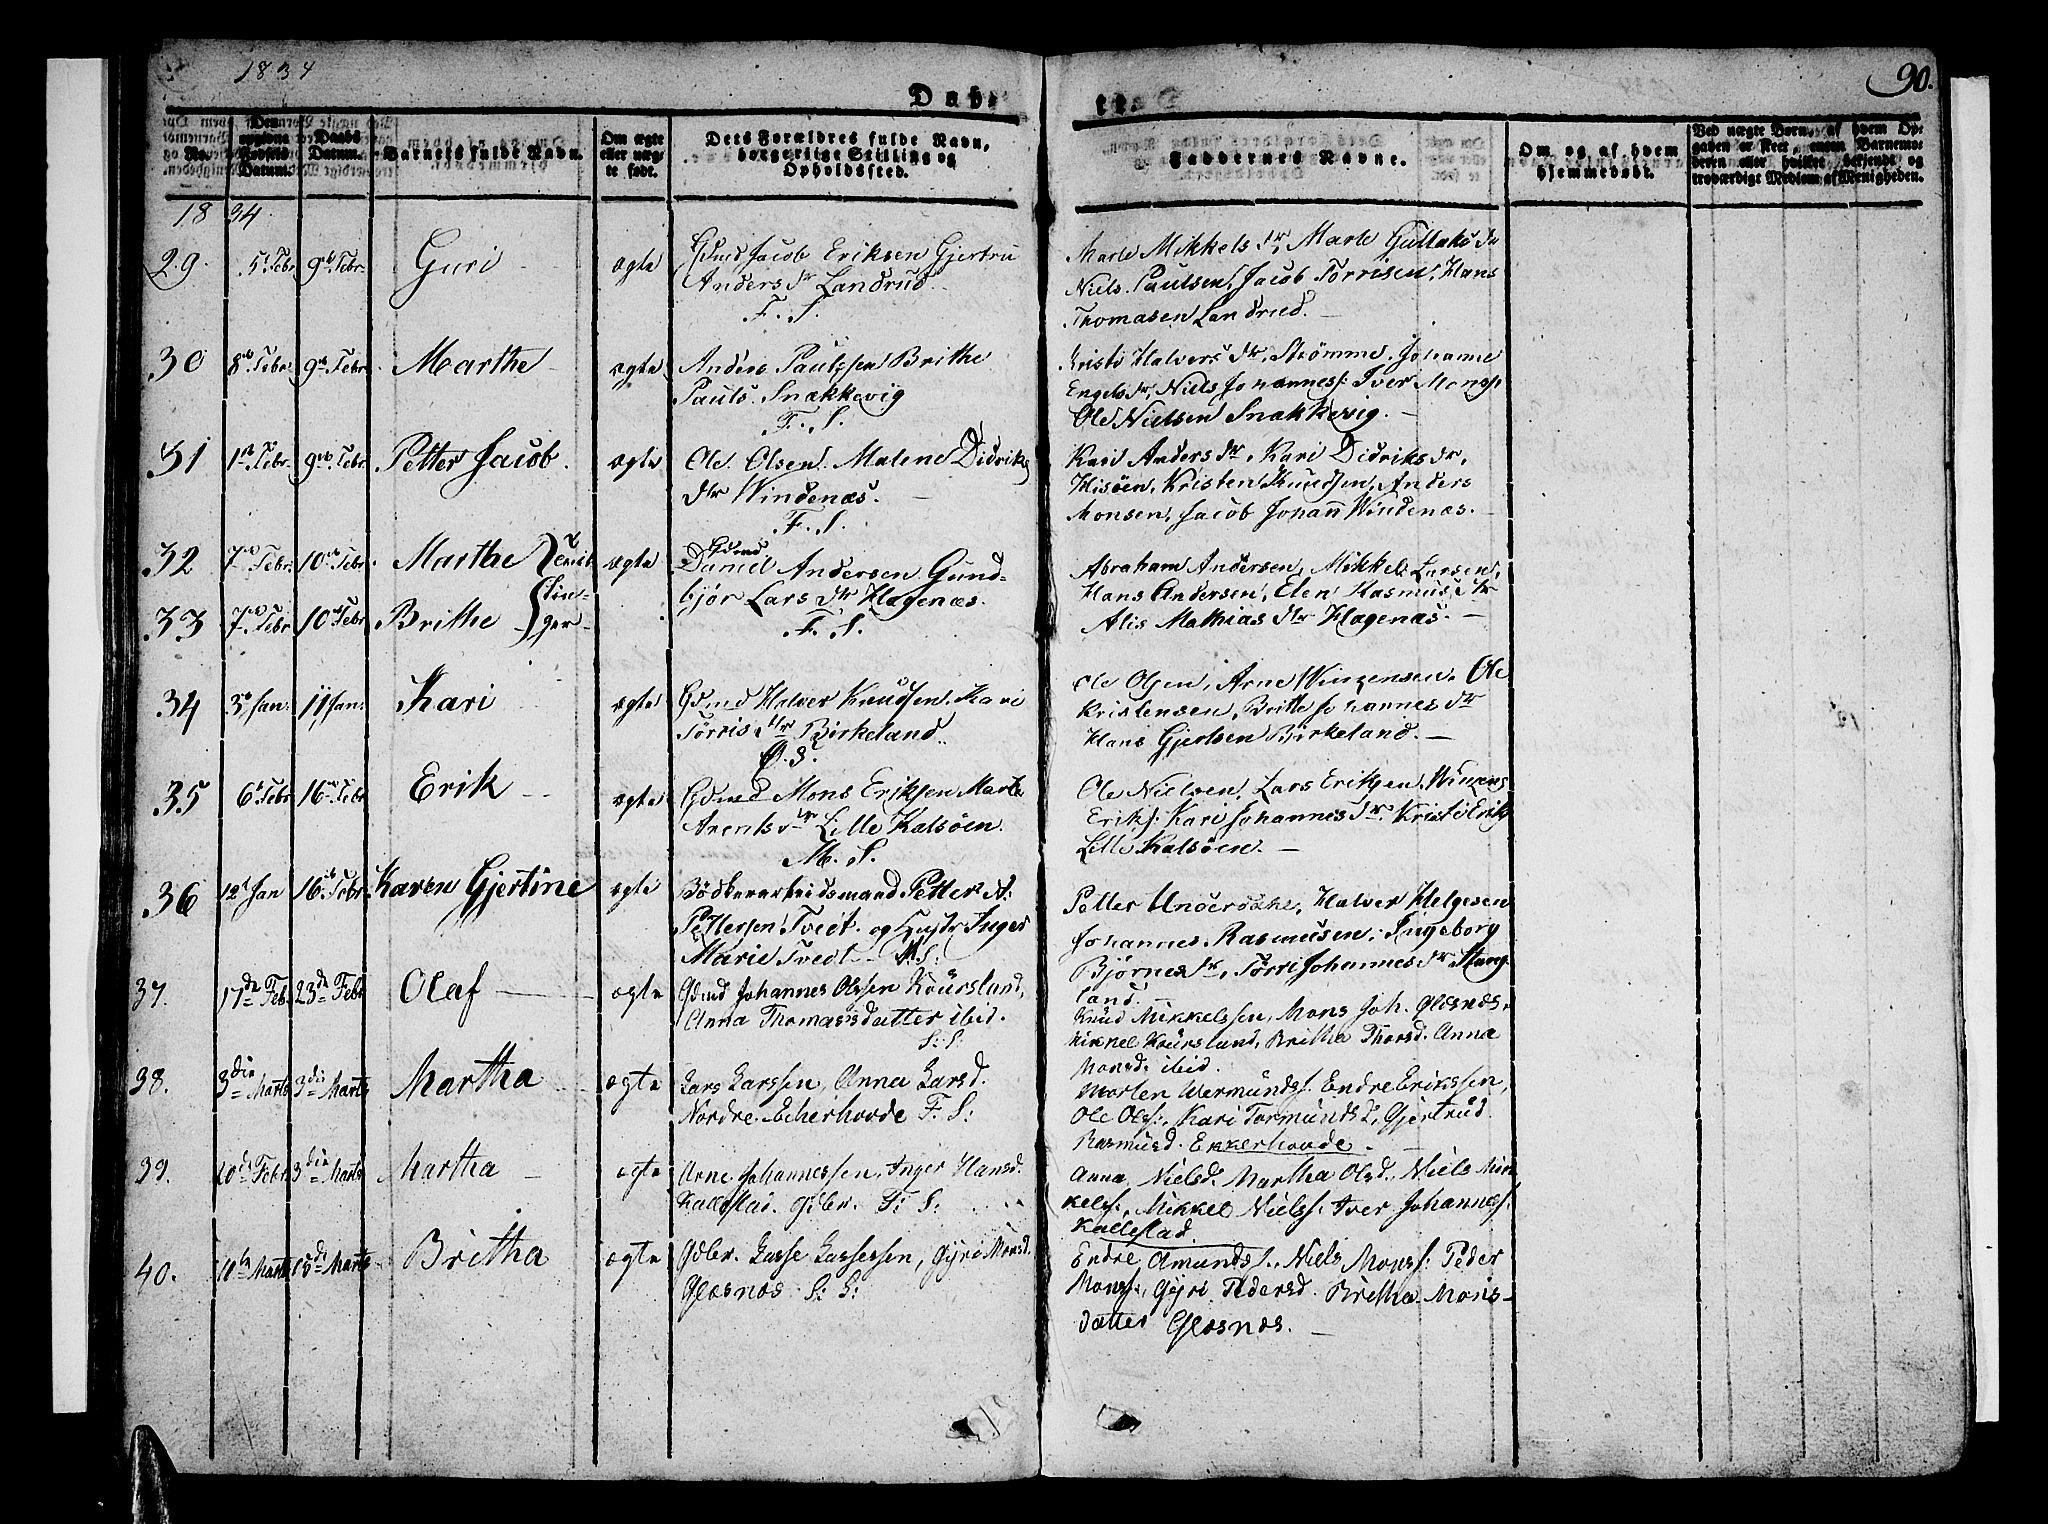 1834
90.
Dab.
No.
Den opgivne Fødsels Datum.
Daabs Datum.
Barnets fulde Navn.
Om ægte eller uægte født.
Dets Forældres fulde Navn, borgerlige Stilling og Opholdssted.
Faddernes Navne.
Om og af hvem hjemmedøbt.
Ved uægte Børn, af hvem Opgaven er skeet, enten Barnemoderen eller hvilket bekjendt og troværdigt Medlem af Menigheden.
1834.
29. 5t Febr. 9de Febr. Guri ægte Gdmd Jacob Eriksen Gjertru
Anders dr Landrud.
F. S.
Marte Mikkels dr, Marte Gullaks dr
Niels Paulsen, Jacob Torrisen, Hans
Thomasen Landrud.
30 8de Febr. 9de Febr. Marthe ægte Anders Paulssen Brithe
Pauls. Snækkevig
F. S.
Kristi Halvers dr, Strømme, Johanne
Engels dr, Niels Johanness: Iver Monss
Ole Nielsen Snækkevig.
31 1ste Febr. 9de Febr. Petter Jacob. ægte Ole Olsen. Malene Didriks
dtr Windenæs.
F. S.
Kari Anders dtr, Kari Didriks dr,
Hisöen, Kristen Knudsen, Anders
Monsen, Jacob Johan Windenæs.
32 7de Febr. 10de Febr. Marthe ægte Gdmd
Daniel Andersen Gund-
björ Lars dtr Hagenæs.
F. S.
33 7de Febr. 10de Febr. Brithe
Abraham Andersen, Mikkel Larsen,
Hans Andersen, Elen Rasmus dtr
Alis Mathias dtr Hagenæs.
34 3de Jan. 11 Jan. Kari ægte Gdmd Halver Knudsen. Kari
Torris dtr Birkeland.
Ø. S.
Ole Olsen, Arne Winzensen, Ole
Kristensen, Britte Johannes dtr
Hans Gjertsen Birkeland.
35 6t Febr. 16de Febr. Erik ægte Gdmd Mons Eriksen Marte
Arents dtr Lille Kalsöen.
M. S.
Ole Nielsen, Lars Eriksen, Winzens
Eriks: Kari Johannes dr. Kristi Erik
Lille Kalsöen.
36 12t Jan 16de Febr. Karen Gjertine ægte Bödkerarbeidsmand Petter A:
Pettersen Tveit. og Hustr Inger
Marie Tvedt M: S:
Petter Underdahl, Halver Helgesen
Johannes Rasmusen, Ingeborg
Björnes dr, Torri Johannes dr Haug
land.
37. 17de Feb. 23de Febr Olaf ægte Gdmd Johannes Olssen Koursland,
Anna Thomassdatter ibid.
S: S:
Knud Mikkelssen, Mons Joh. Glesnæs.
Mikkel Koursland, Britha Thorsd. Anna
Monsd. ibid.
38. 3die Marts 3die Marts Martha ægte Lars Larssen, Anna Larsd.
Nordre Echerhovde F. S:
Morten Wermunds. Endre Erikssen,
Ole Ols:, Kari Tormundsd, Gjertrud
Rasmusd. Ekkerhovde.
39. 20de Febr. 3die Marts Martha ægte Arne Johannessen, Inger Hansd.
Kallestad. Gdbr. F: S:
Anna Nielsd. Martha Olsd., Niels Mik
kels:, Mikkel Niels: Iver Johannes:
Kallestad.
40. 10de Marts 15de Marts Britha ægte Gdbr. Lasse Lassessen, Gyri Monsd.
Glæsnæs S: S:
Endre Amunds., Niels Mons: Peder
Mons:, Gyri Pedersd. Britha Mons-
datter Glæsnæs.